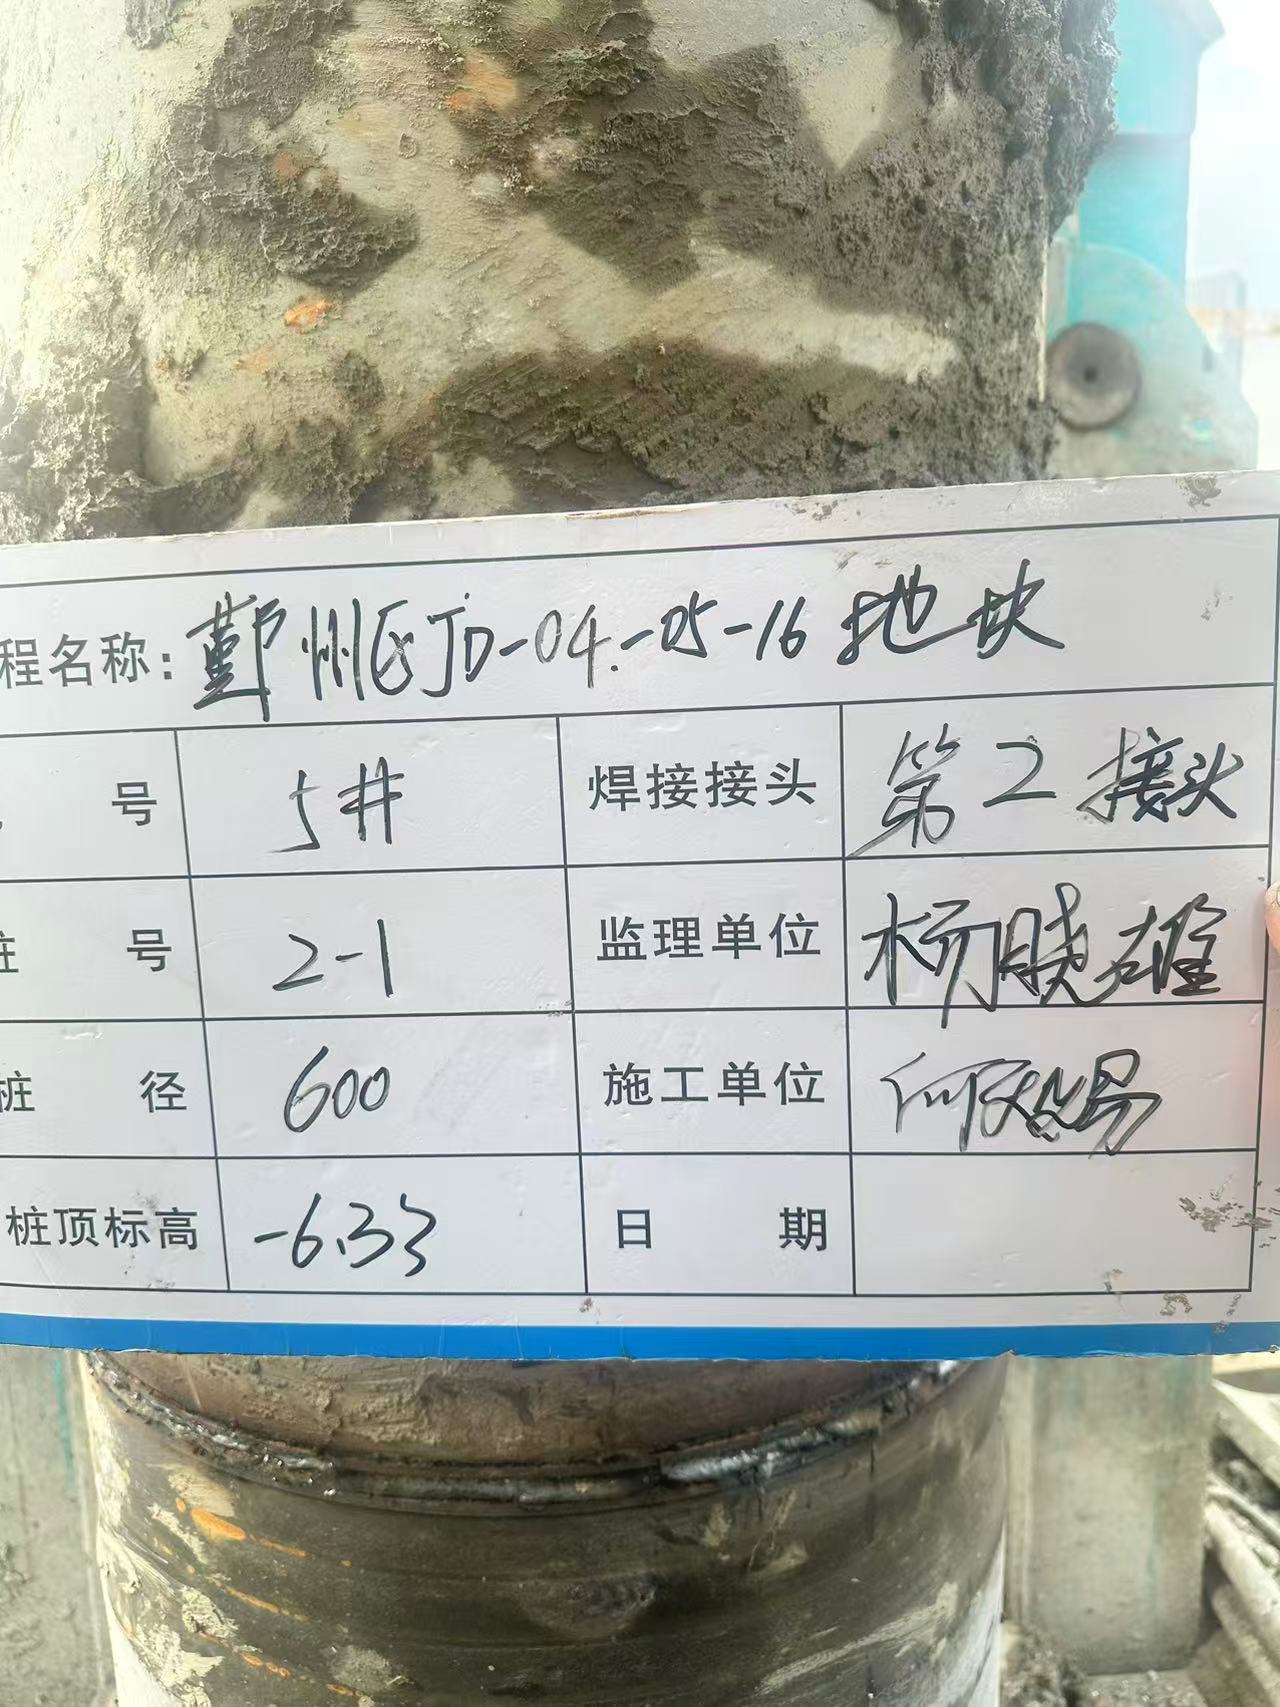 程名称：鄞州区JD-04-05-16地块
号 5# 焊接接头 第2接头
桩 号 2-1 监理单位 杨晓雄
桩 径 600 施工单位 何
桩顶标高 -6.33 日 期